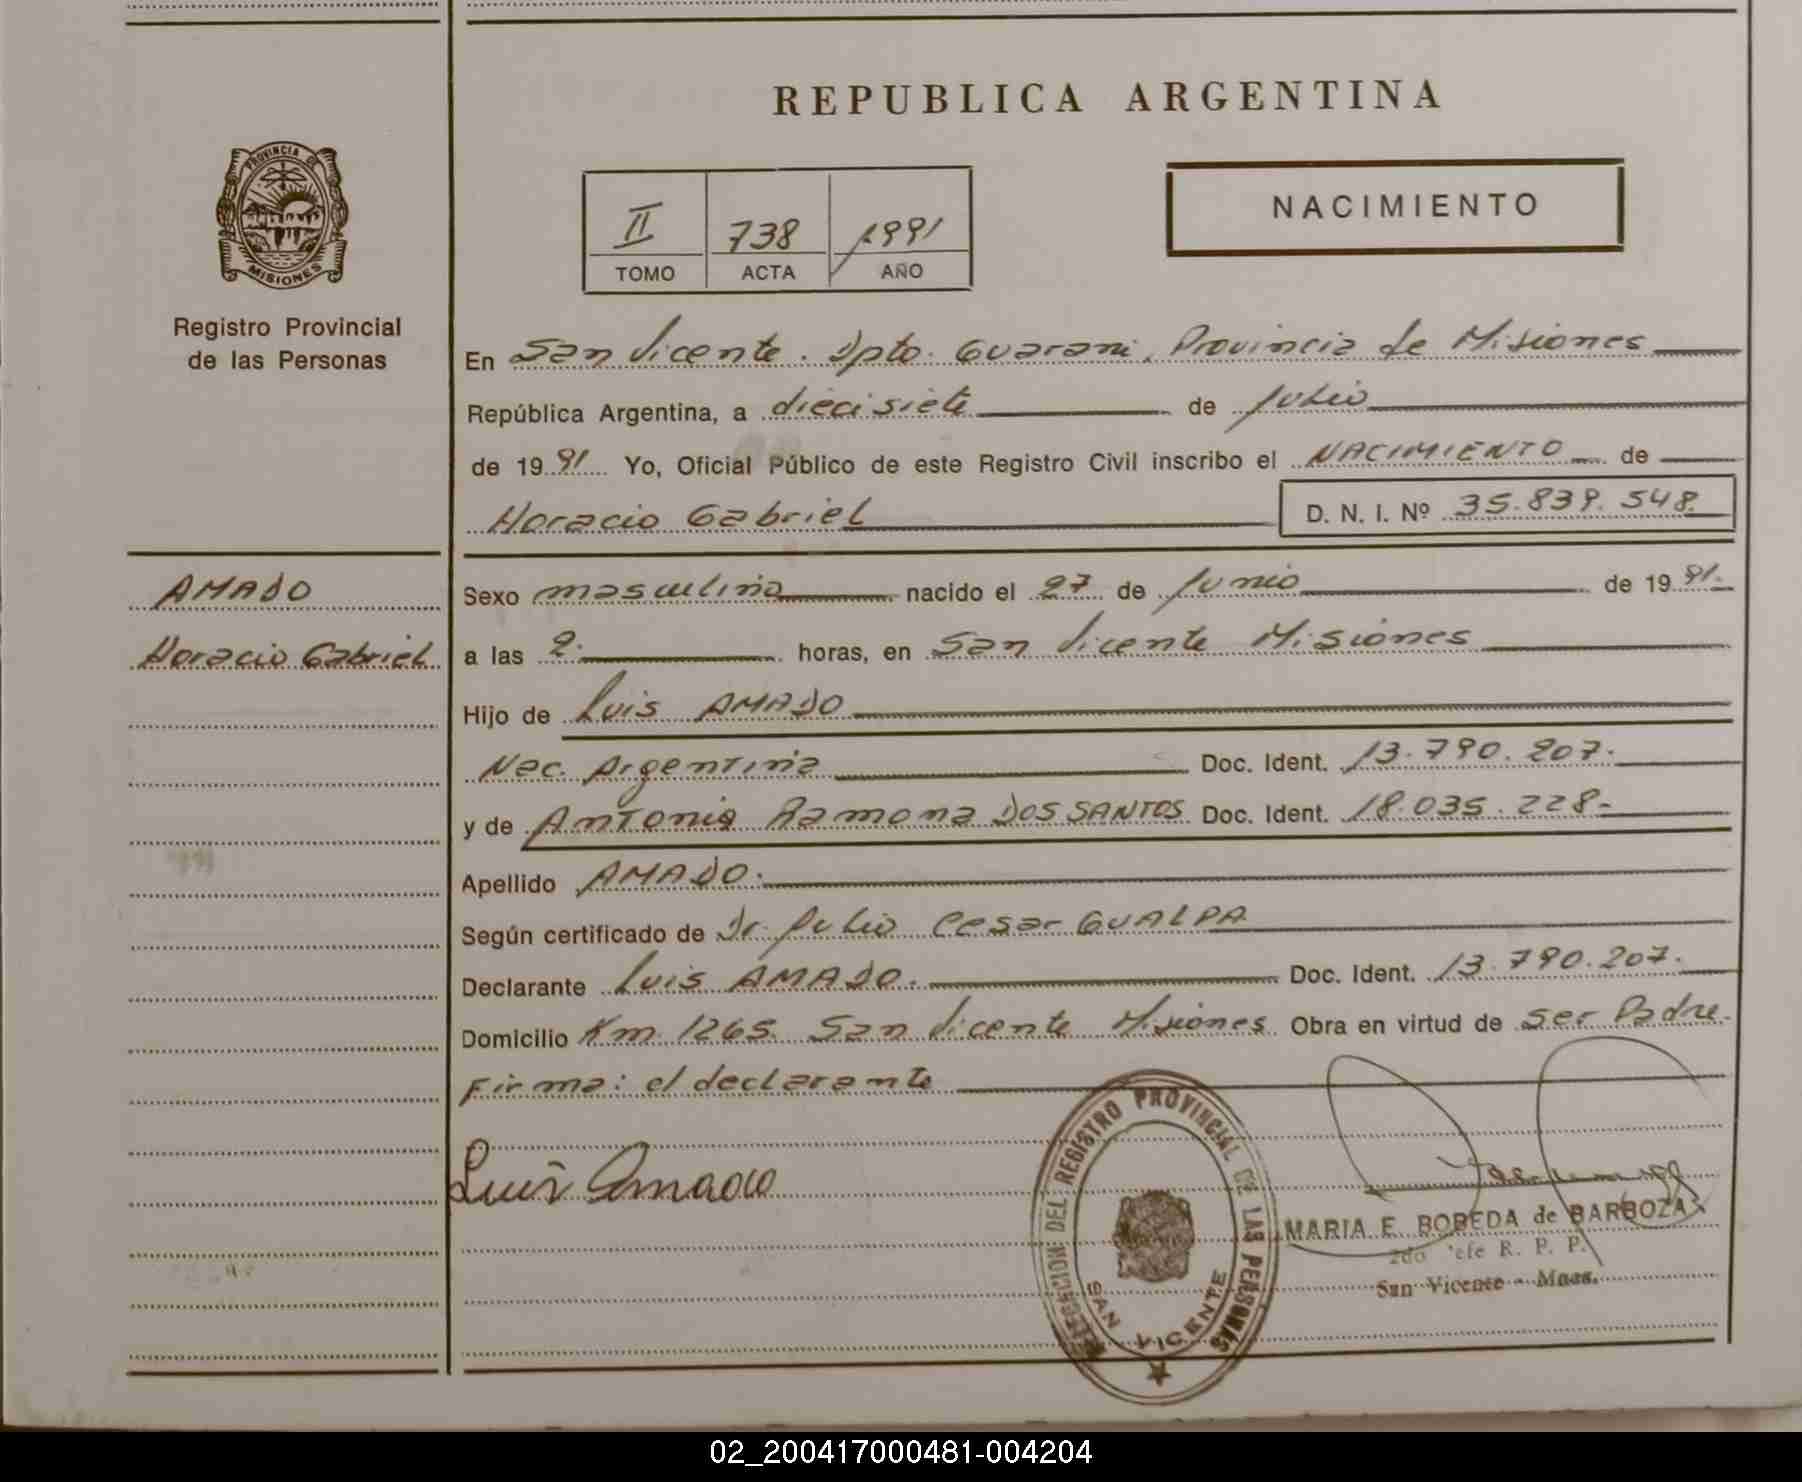 REPUBLICA ARGENTINA
PROVINCIA DE
MISIONES
Registro Provincial
de las Personas
II 738 1991
TOMO ACTA AÑO
NACIMIENTO
En San Vicente. Dpto. Guarani, Provincia de Misiones
República Argentina, a diecisiete de Julio
de 1991 Yo, Oficial Público de este Registro Civil inscribo el NACIMIENTO de
Horacio Gabriel D. N. I. Nº 35.839.548.
AMADO
Horacio Gabriel
Sexo masculino nacido el 27 de Junio de 1991.
a las 2. horas, en San Vicente Misiones
Hijo de Luis AMADO
Nac. Argentina Doc. Ident. 13.790.207.
y de Antonia Ramona DOS SANTOS Doc. Ident. 18.035.228-
Apellido AMADO.
Según certificado de Dr. Julio Cesar GUALPA
Declarante Luis AMADO. Doc. Ident. 13.790.207.
Domicilio Km. 1265. San Vicente Misiones Obra en virtud de ser Padre.
Firma: el declarante
Luis Amado
DELEGACION DEL REGISTRO PROVINCIAL DE LAS PERSONAS
SAN VICENTE
MARIA E. BOBEDA de BARBOZA
2do efe R. P. P.
San Vicente - Mnes.
02_200417000481-004204